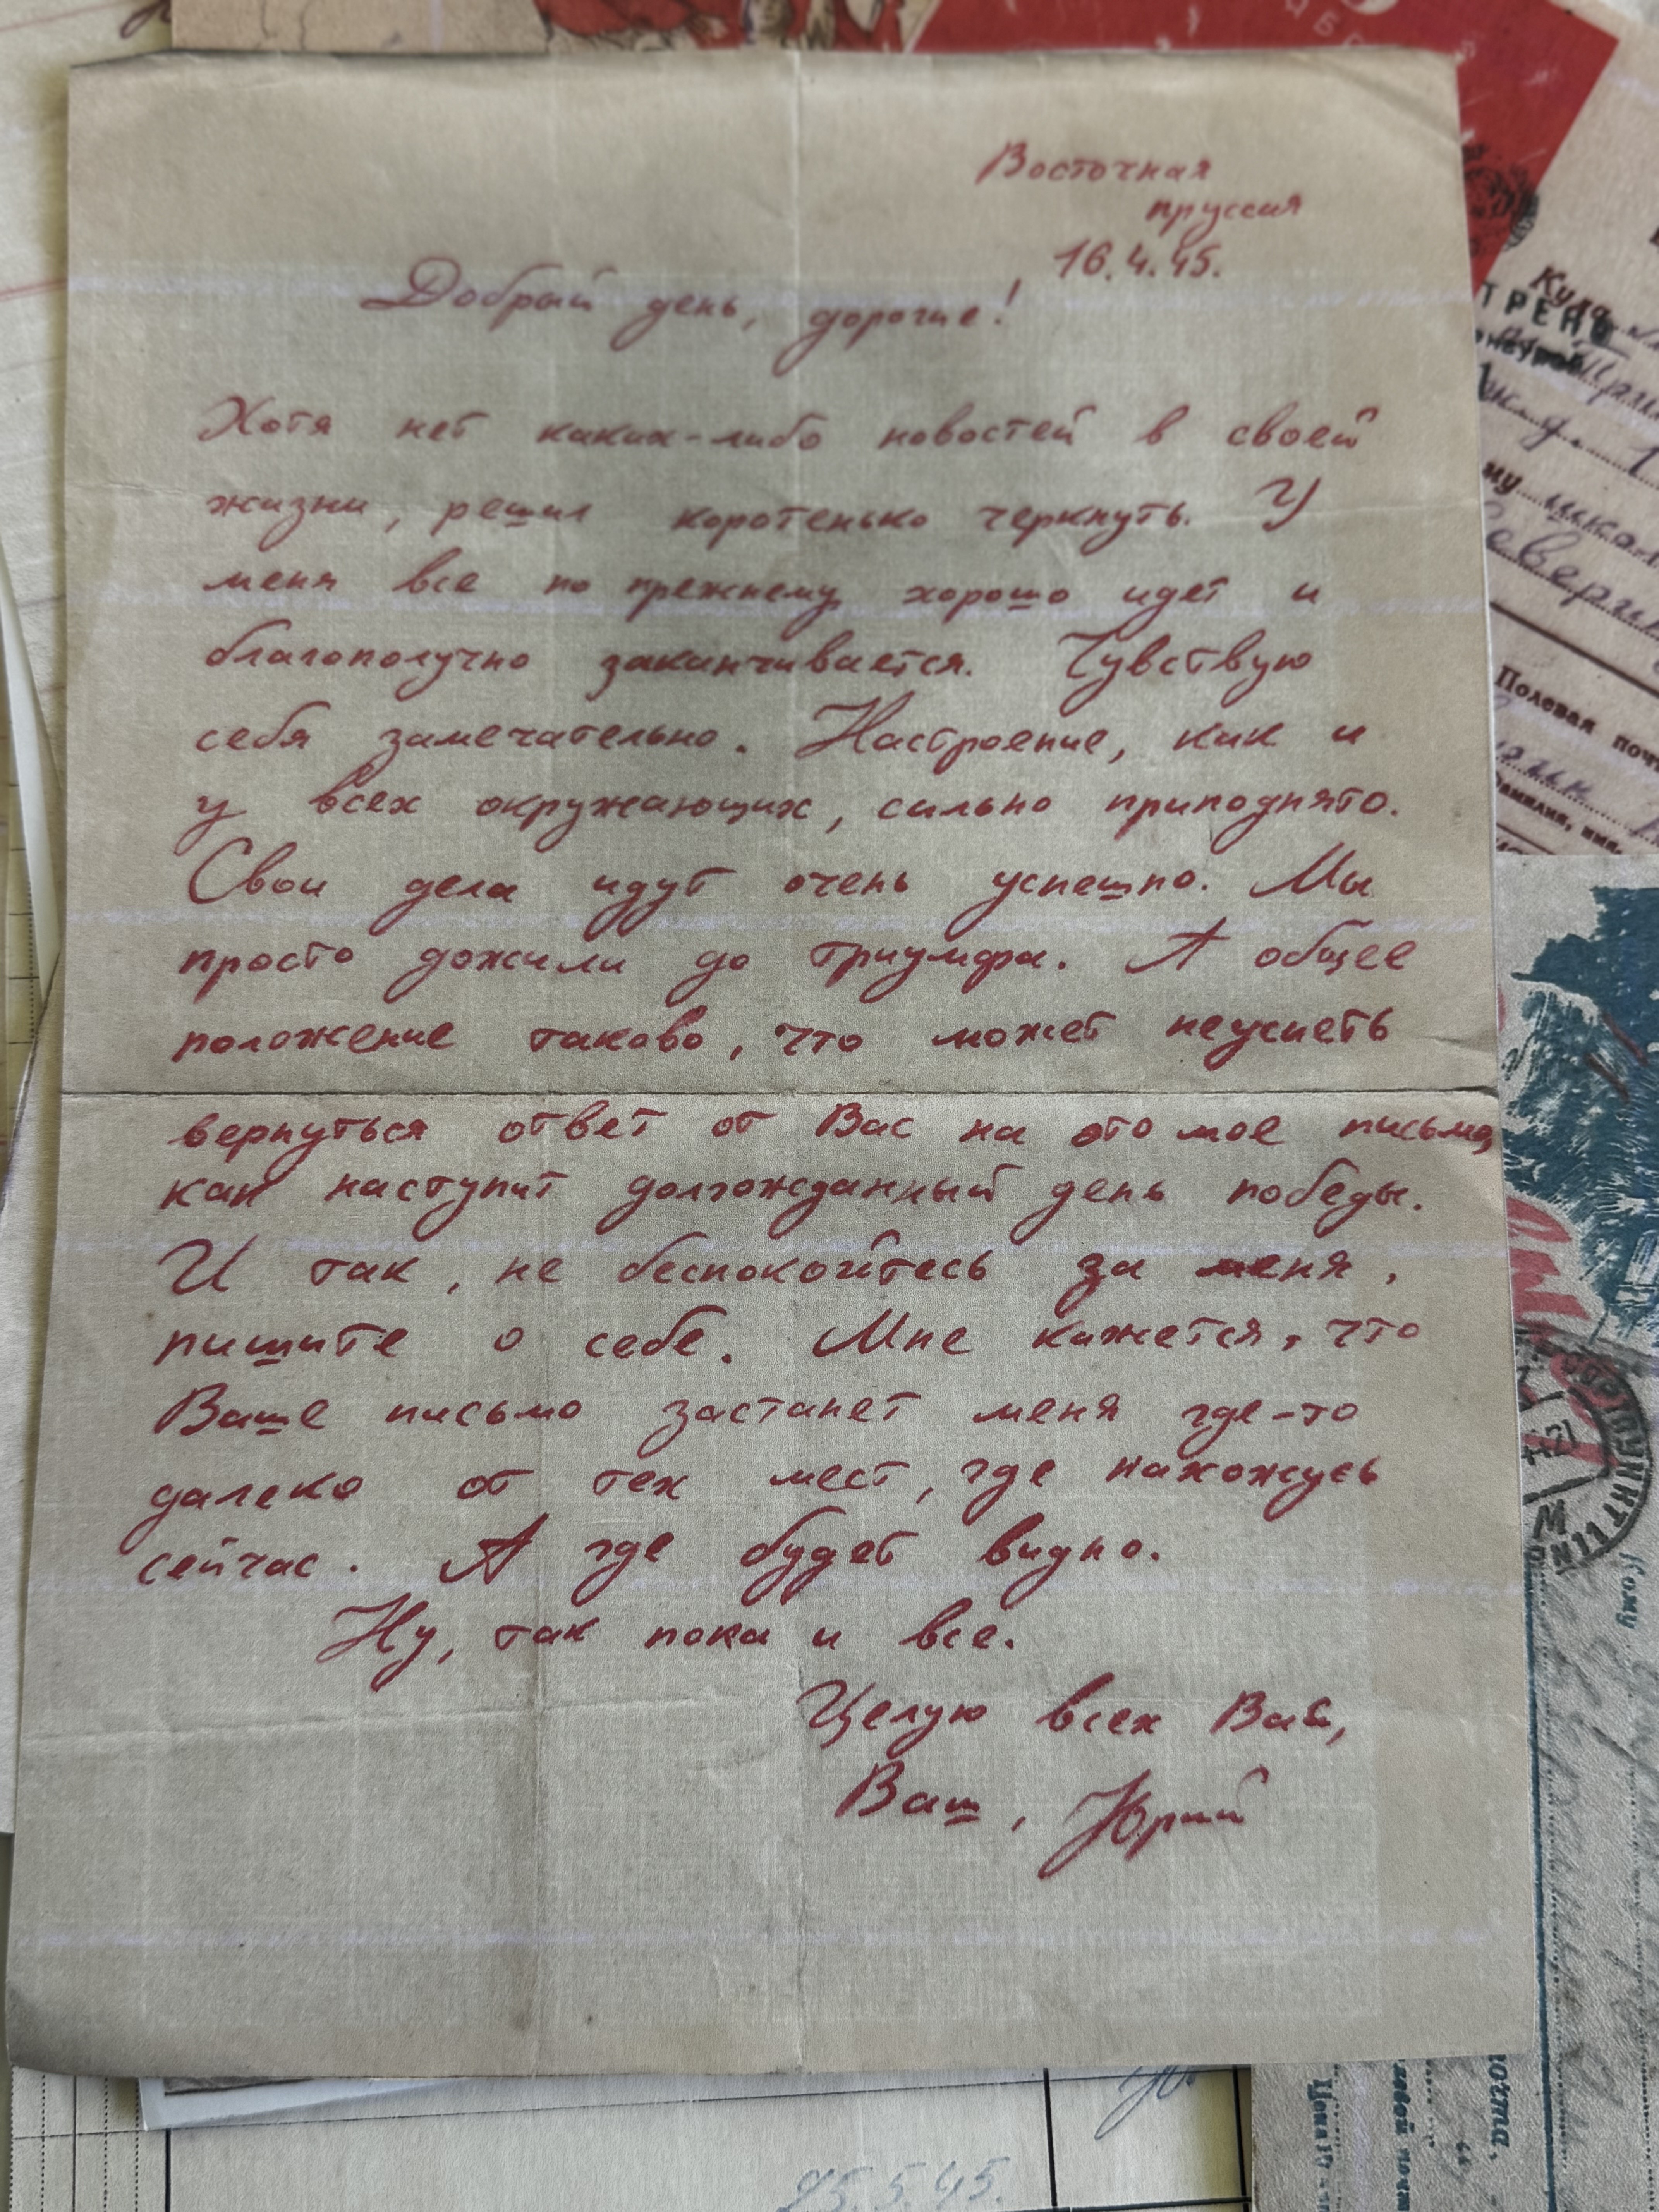 Восточная
пруссия
16.4.45.
Добрый день, дорогие!
Хотя нет каких-либо новостей в своей
жизни, решил коротенько черкнуть. У
меня все по прежнему хорошо идет и
благополучно заканчивается. Чувствую
себя замечательно. Настроение, как и
у всех окружающих, сильно приподнято.
Свои дела идут очень успешно. Мы
просто дожили до триумфа. А общее
положение таково, что может неуспеть
вернуться ответ от Вас на это мое письмо,
как наступит долгожданный день победы.
И так, не беспокойтесь за меня,
пишите о себе. Мне кажется, что
Ваше письмо застанет меня где-то
далеко от тех мест, где нахожусь
сейчас. А где будет видно.
Ну, так пока и все.
Целую всех Вас,
Ваш, Юрий
Куда
ТРЕНО
Полевая почт
Кому
25.5.45.